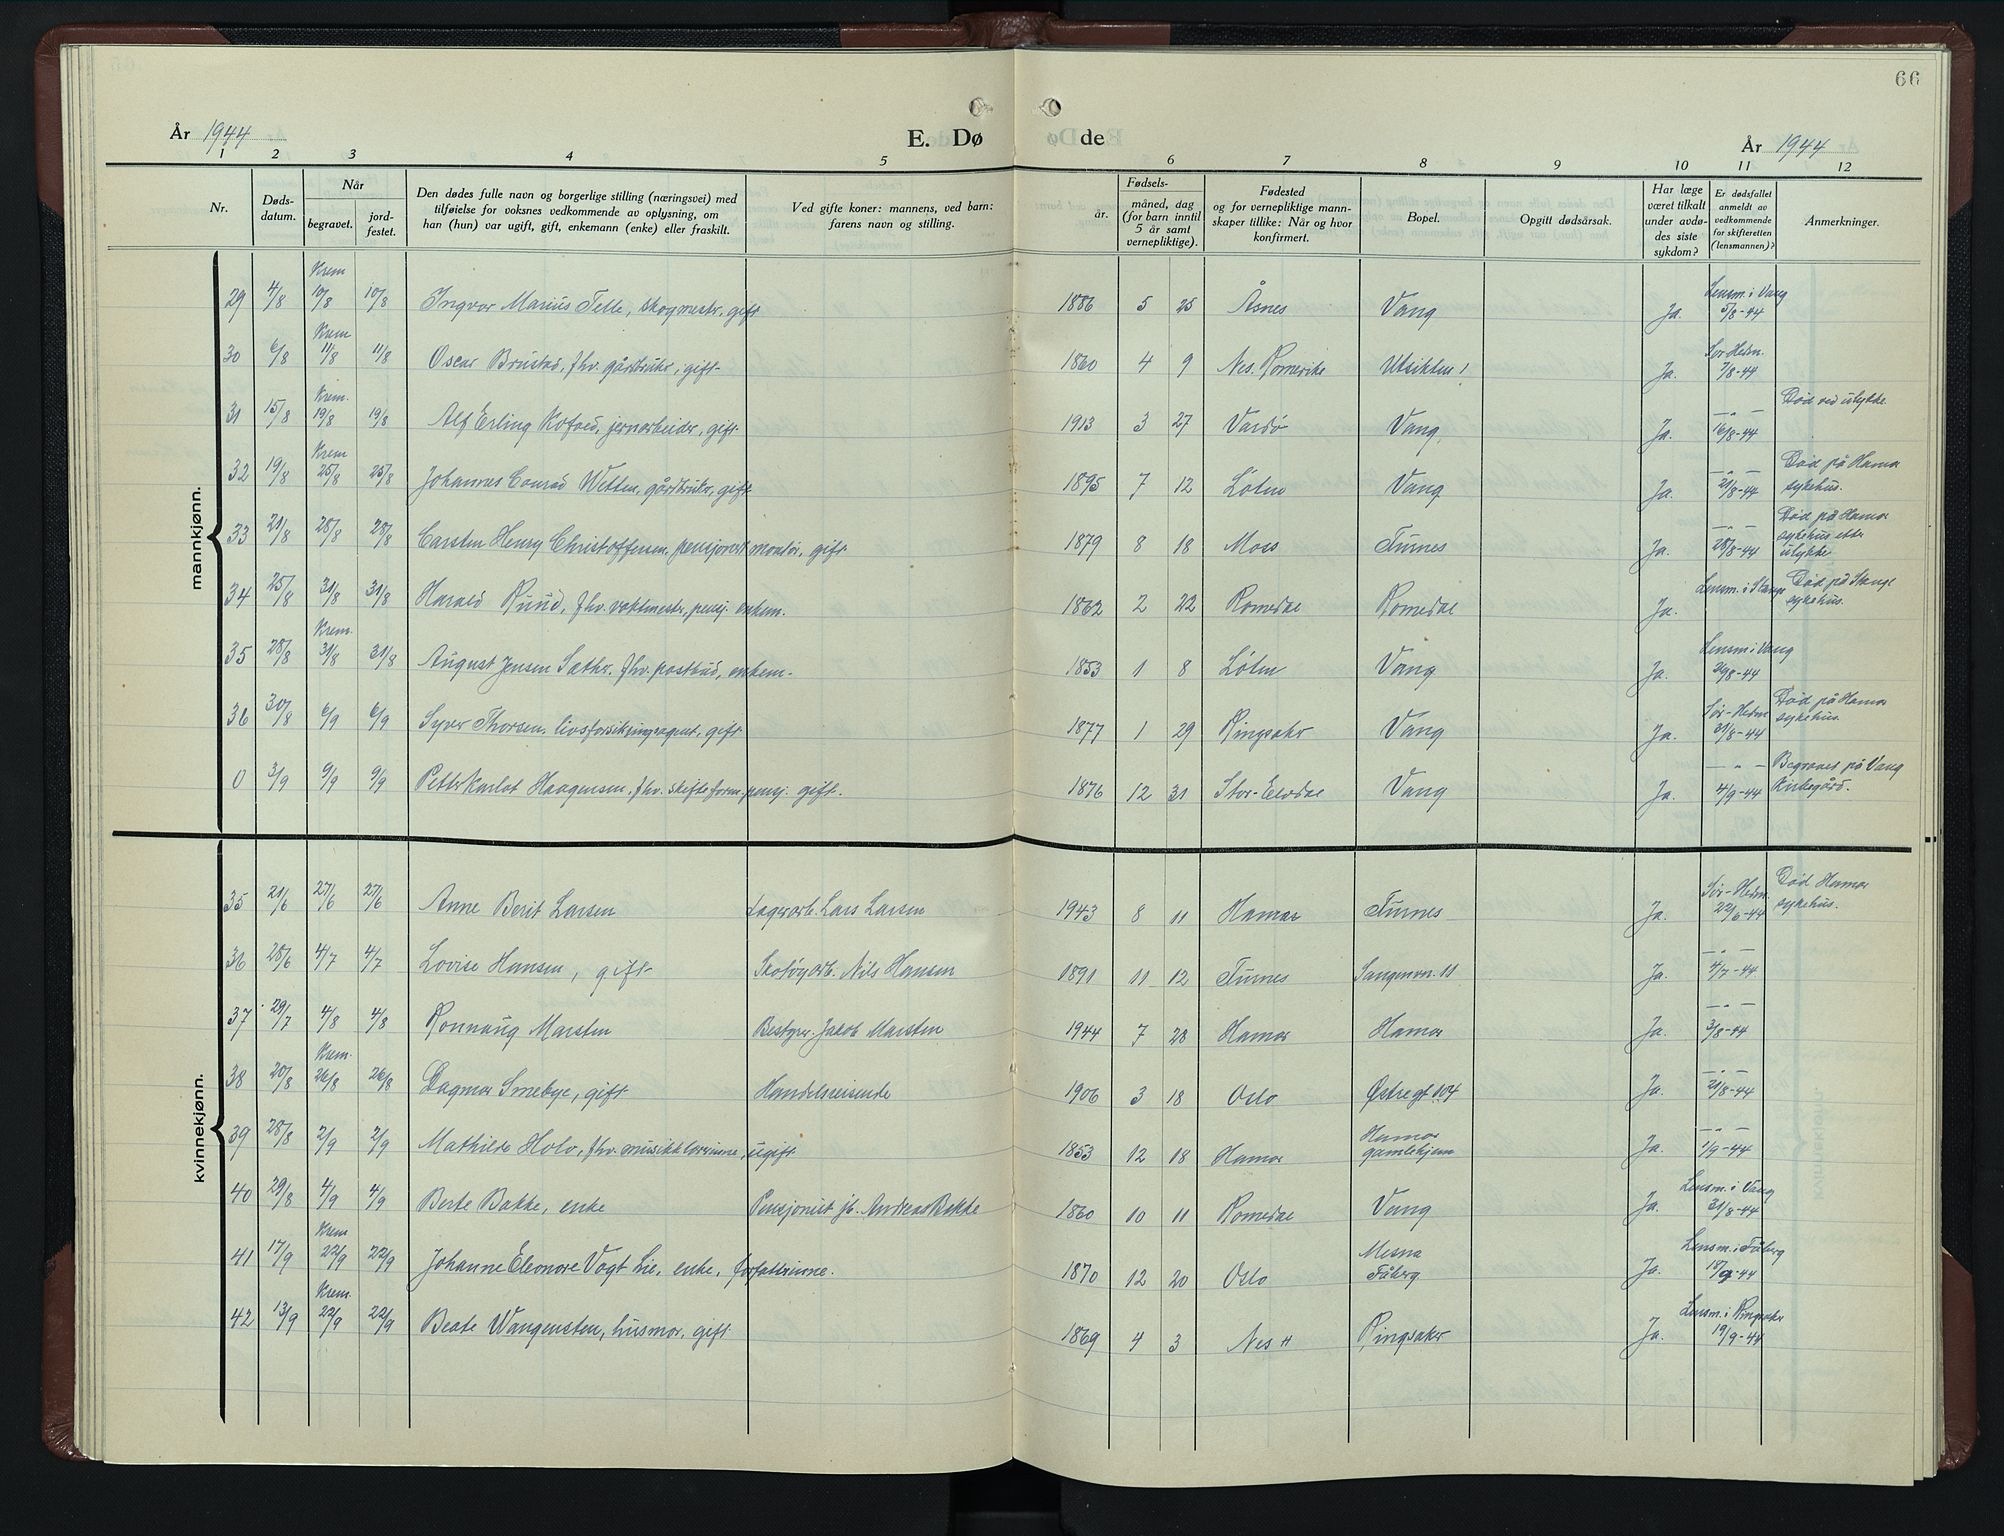 66
År 1944 E. Dø de År 1944
1 2 3 4 5 6 7 8 9 10 11 12
Nr. Døds-datum. Når begravet. jord-festet. Den dødes fulle navn og borgerlige stilling (næringsvei) med tilføielse for voksnes vedkommende av oplysning, om han (hun) var ugift, gift, enkemann (enke) eller fraskilt. Ved gifte koner: mannens, ved barn: farens navn og stilling. Fødsels- år. måned, dag (for barn inntil 5 år samt vernepliktige). Fødested og for vernepliktige mann-skaper tillike: Når og hvor konfirmert. Bopel. Opgitt dødsårsak. Har læge været tilkalt under avdø-des siste sykdom? Er dødsfallet anmeldt av vedkommende for skifteretten (lensmannen)? Anmerkninger.
mannkjønn.
29 4/8 Krem 10/8 10/8 Ingvar Marius Telle, skogmestr, gift 1886 5 25 Åsnes Vang Ja. Lensm. i Vang 5/8-44
30 6/8 Krem 11/8 11/8 Oscar Brustad, fhv. gårdbrukr, gift 1860 4 9 Nes, Romerike Utsikten 1 Ja. Sør-Hedm. 7/8-44
31 15/8 Krem. 19/8 19/8 Alf Erling Kofoed, jernarbeider, gift 1913 3 27 Vardø Vang Ja. — " — 16/8-44 Død ved ulykke
32 19/8 Krem 25/8 25/8 Johannes Conrad Wetten, gårdbrukr, gift 1895 7 12 Løten Vang Ja. — " — 21/8-44 Død på Hamar sykehus.
33 21/8 28/8 28/8 Carsten Henry Christoffersen, pensjonert montør, gift 1879 8 18 Moss Furnes Ja. — " — 28/8-44 Død på Hamar sykehus etter ulykke
34 25/8 31/8 31/8 Harald Ruud, fhv. vaktmestr, pensj. enkem. 1862 2 22 Romedal Romedal Ja. Lensm. i Stange Død på Stange sykehus.
35 28/8 Krem. 31/8 31/8 August Jensen Sæther. fhv. postbud, enkem. 1853 1 8 Løten Vang Ja. Lensm i Vang 29/8-44
36 30/8 6/9 6/9 Syver Thorsen, livsforsikringsagent, gift 1877 1 29 Ringsaker Vang Ja. Sør-Hedm 31/8-44 Død på Hamar sykehus.
0 3/9 9/9 9/9 Petter Karlot Haagensen, fhv. skifteform. pensj. gift. 1876 12 31 Stor-Elvdal Vang Ja. — " — 4/9-44 Begraves på Vang Kirkegård.
kvinnekjønn.
35 21/6 27/6 27/6 Anne Berit Larsen Lagerarb. Lars Larsen 1943 8 11 Hamar Furnes Ja. Sør-Hedm. 22/6-44 Død Hamar sykehus.
36 28/6 4/7 4/7 Lovise Hansen, gift Skotøyarb. Nils Hansen 1891 11 12 Furnes Sangenvn. 11 Ja. — " — 4/7-44
37 29/7 4/8 4/8 Ronnaug Marsten Bestyrer Jakob Marsten 1944 7 28 Hamar Hamar Ja. — " — 3/8-44
38 20/8 Krem. 26/8 26/8 Dagmar Smebye, gift Handelsreisende 1906 3 18 Oslo Østregt 104 Ja. — " — 21/8-44
39 28/8 2/9 2/9 Mathilde Holo, fhv. musikklærerinne, ugift 1853 12 18 Hamar Hamar gamlehjem Ja. — " — 1/9-44
40 29/8 4/9 4/9 Berte Bakke, enke Pensjonist jb. Andreas Bakke 1860 10 11 Romedal Vang Ja. Lensm. i Vang 31/8-44
41 17/9 Krem 22/9 22/9 Johanne Eleonore Vogt Lie, enke, forfatterinne. 1870 12 20 Oslo Mesna Fåberg Ja. Lensm. i Fåberg 18/9-44
42 13/9 Krem. 22/9 22/9 Beate Wangensten, husmor, gift 1869 4 3 Nes H Ringsaker Ja. Lensm. i Ringsaker 19/9-44